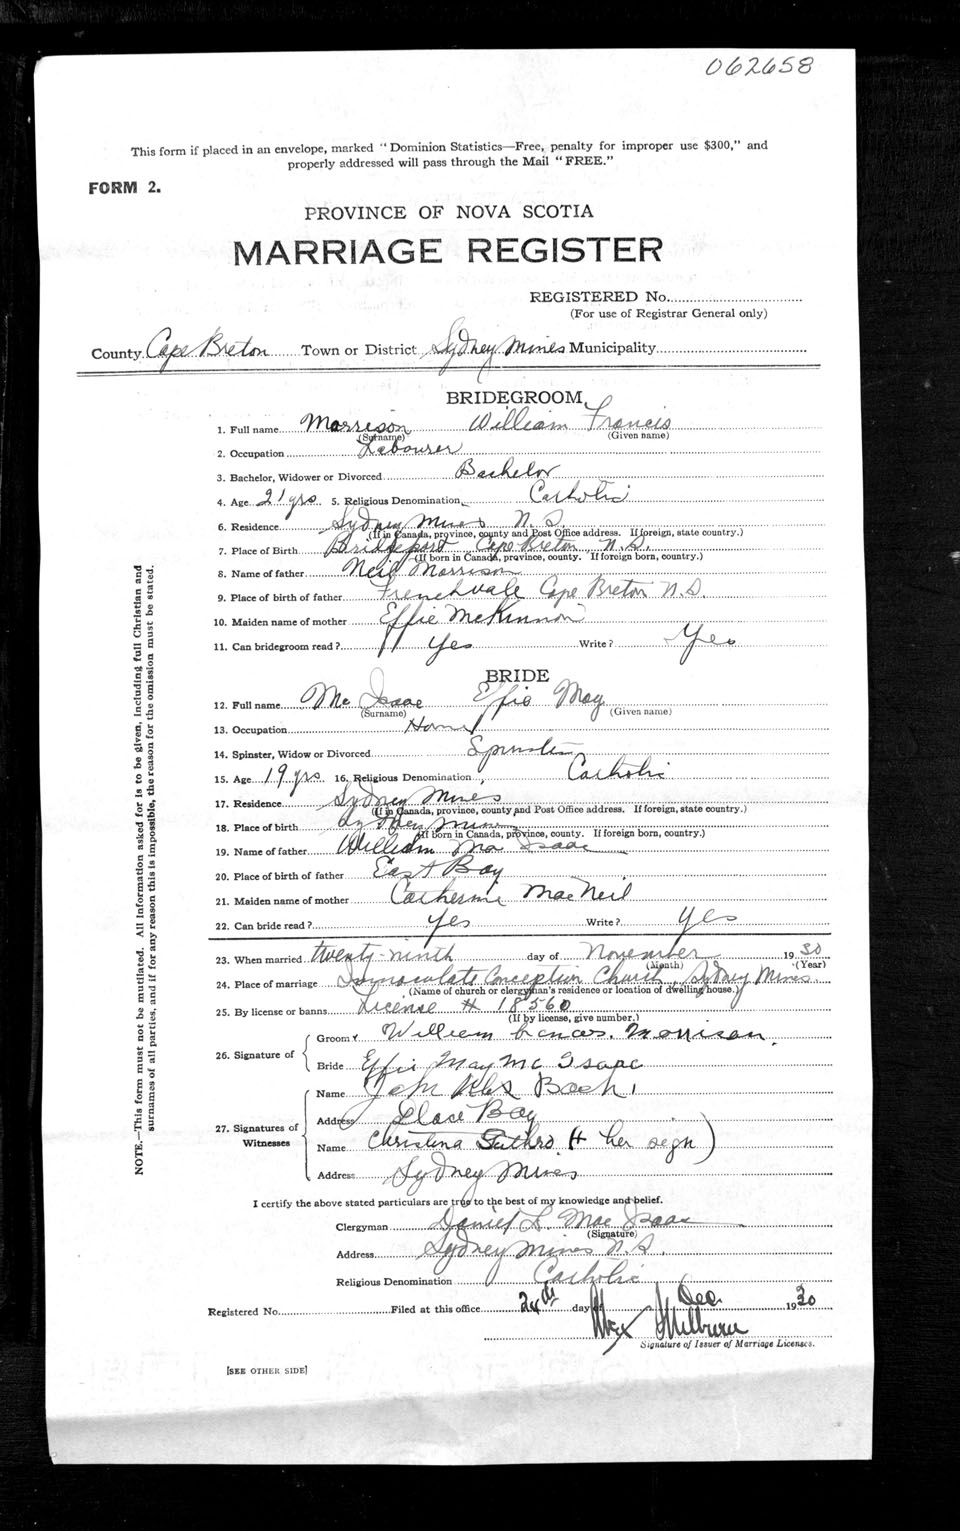 062658
This form if placed in an envelope, marked "Dominion Statistics—Free, penalty for improper use $300," and
properly addressed will pass through the Mail "FREE."
FORM 2.
PROVINCE OF NOVA SCOTIA
MARRIAGE REGISTER
REGISTERED No.
(For use of Registrar General only)
County Cape Breton Town or District Sydney Mines Municipality
BRIDEGROOM
1. Full name Morrison William Francis
(Surname) (Given name)
2. Occupation Labourer
3. Bachelor, Widower or Divorced Bachelor
4. Age 21 yrs. 5. Religious Denomination Catholic
6. Residence Sydney Mines N.S.
(If in Canada, province, county and Post Office address. If foreign, state country.)
7. Place of Birth Bridgeport Cape Breton N.S.
(If born in Canada, province, county. If foreign born, country.)
8. Name of father Neil Morrison
9. Place of birth of father Frenchvale Cape Breton N.S.
10. Maiden name of mother Effie McKinnon
11. Can bridegroom read? Yes Write? Yes
BRIDE
12. Full name Mc Isaac Effie May
(Surname) (Given name)
13. Occupation Home
14. Spinster, Widow or Divorced Spinster
15. Age 19 yrs. 16. Religious Denomination Catholic
17. Residence Sydney Mines
(If in Canada, province, county and Post Office address. If foreign, state country.)
18. Place of birth Sydney Mines
(If born in Canada, province, county. If foreign born, country.)
19. Name of father William Mac Isaac
20. Place of birth of father East Bay
21. Maiden name of mother Catherine MacNeil
22. Can bride read? Yes Write? Yes
23. When married twenty-ninth day of November 1930
(Month) (Year)
24. Place of marriage Immaculate Conception Church, Sydney Mines.
(Name of church or clergyman's residence or location of dwelling house.)
25. By license or banns License # 18560
(If by license, give number.)
26. Signature of
Groom William Frances. Morrison.
Bride Effie May Mc Isaac
27. Signatures of Witnesses
Name John
Address Glace Bay
Name Christena (+ her sign)
Address Sydney Mines
I certify the above stated particulars are true to the best of my knowledge and belief.
Clergyman Daniel L. Mac Isaac
(Signature)
Address Sydney Mines N.S.
Religious Denomination Catholic
Registered No. Filed at this office 24th day of Dec. 1930
Signature of Issuer of Marriage Licenses.
[SEE OTHER SIDE]
NOTE.—This form must not be mutilated. All Information asked for is to be given, including full Christian and
surnames of all parties, and if for any reason this is impossible, the reason for the omission must be stated.